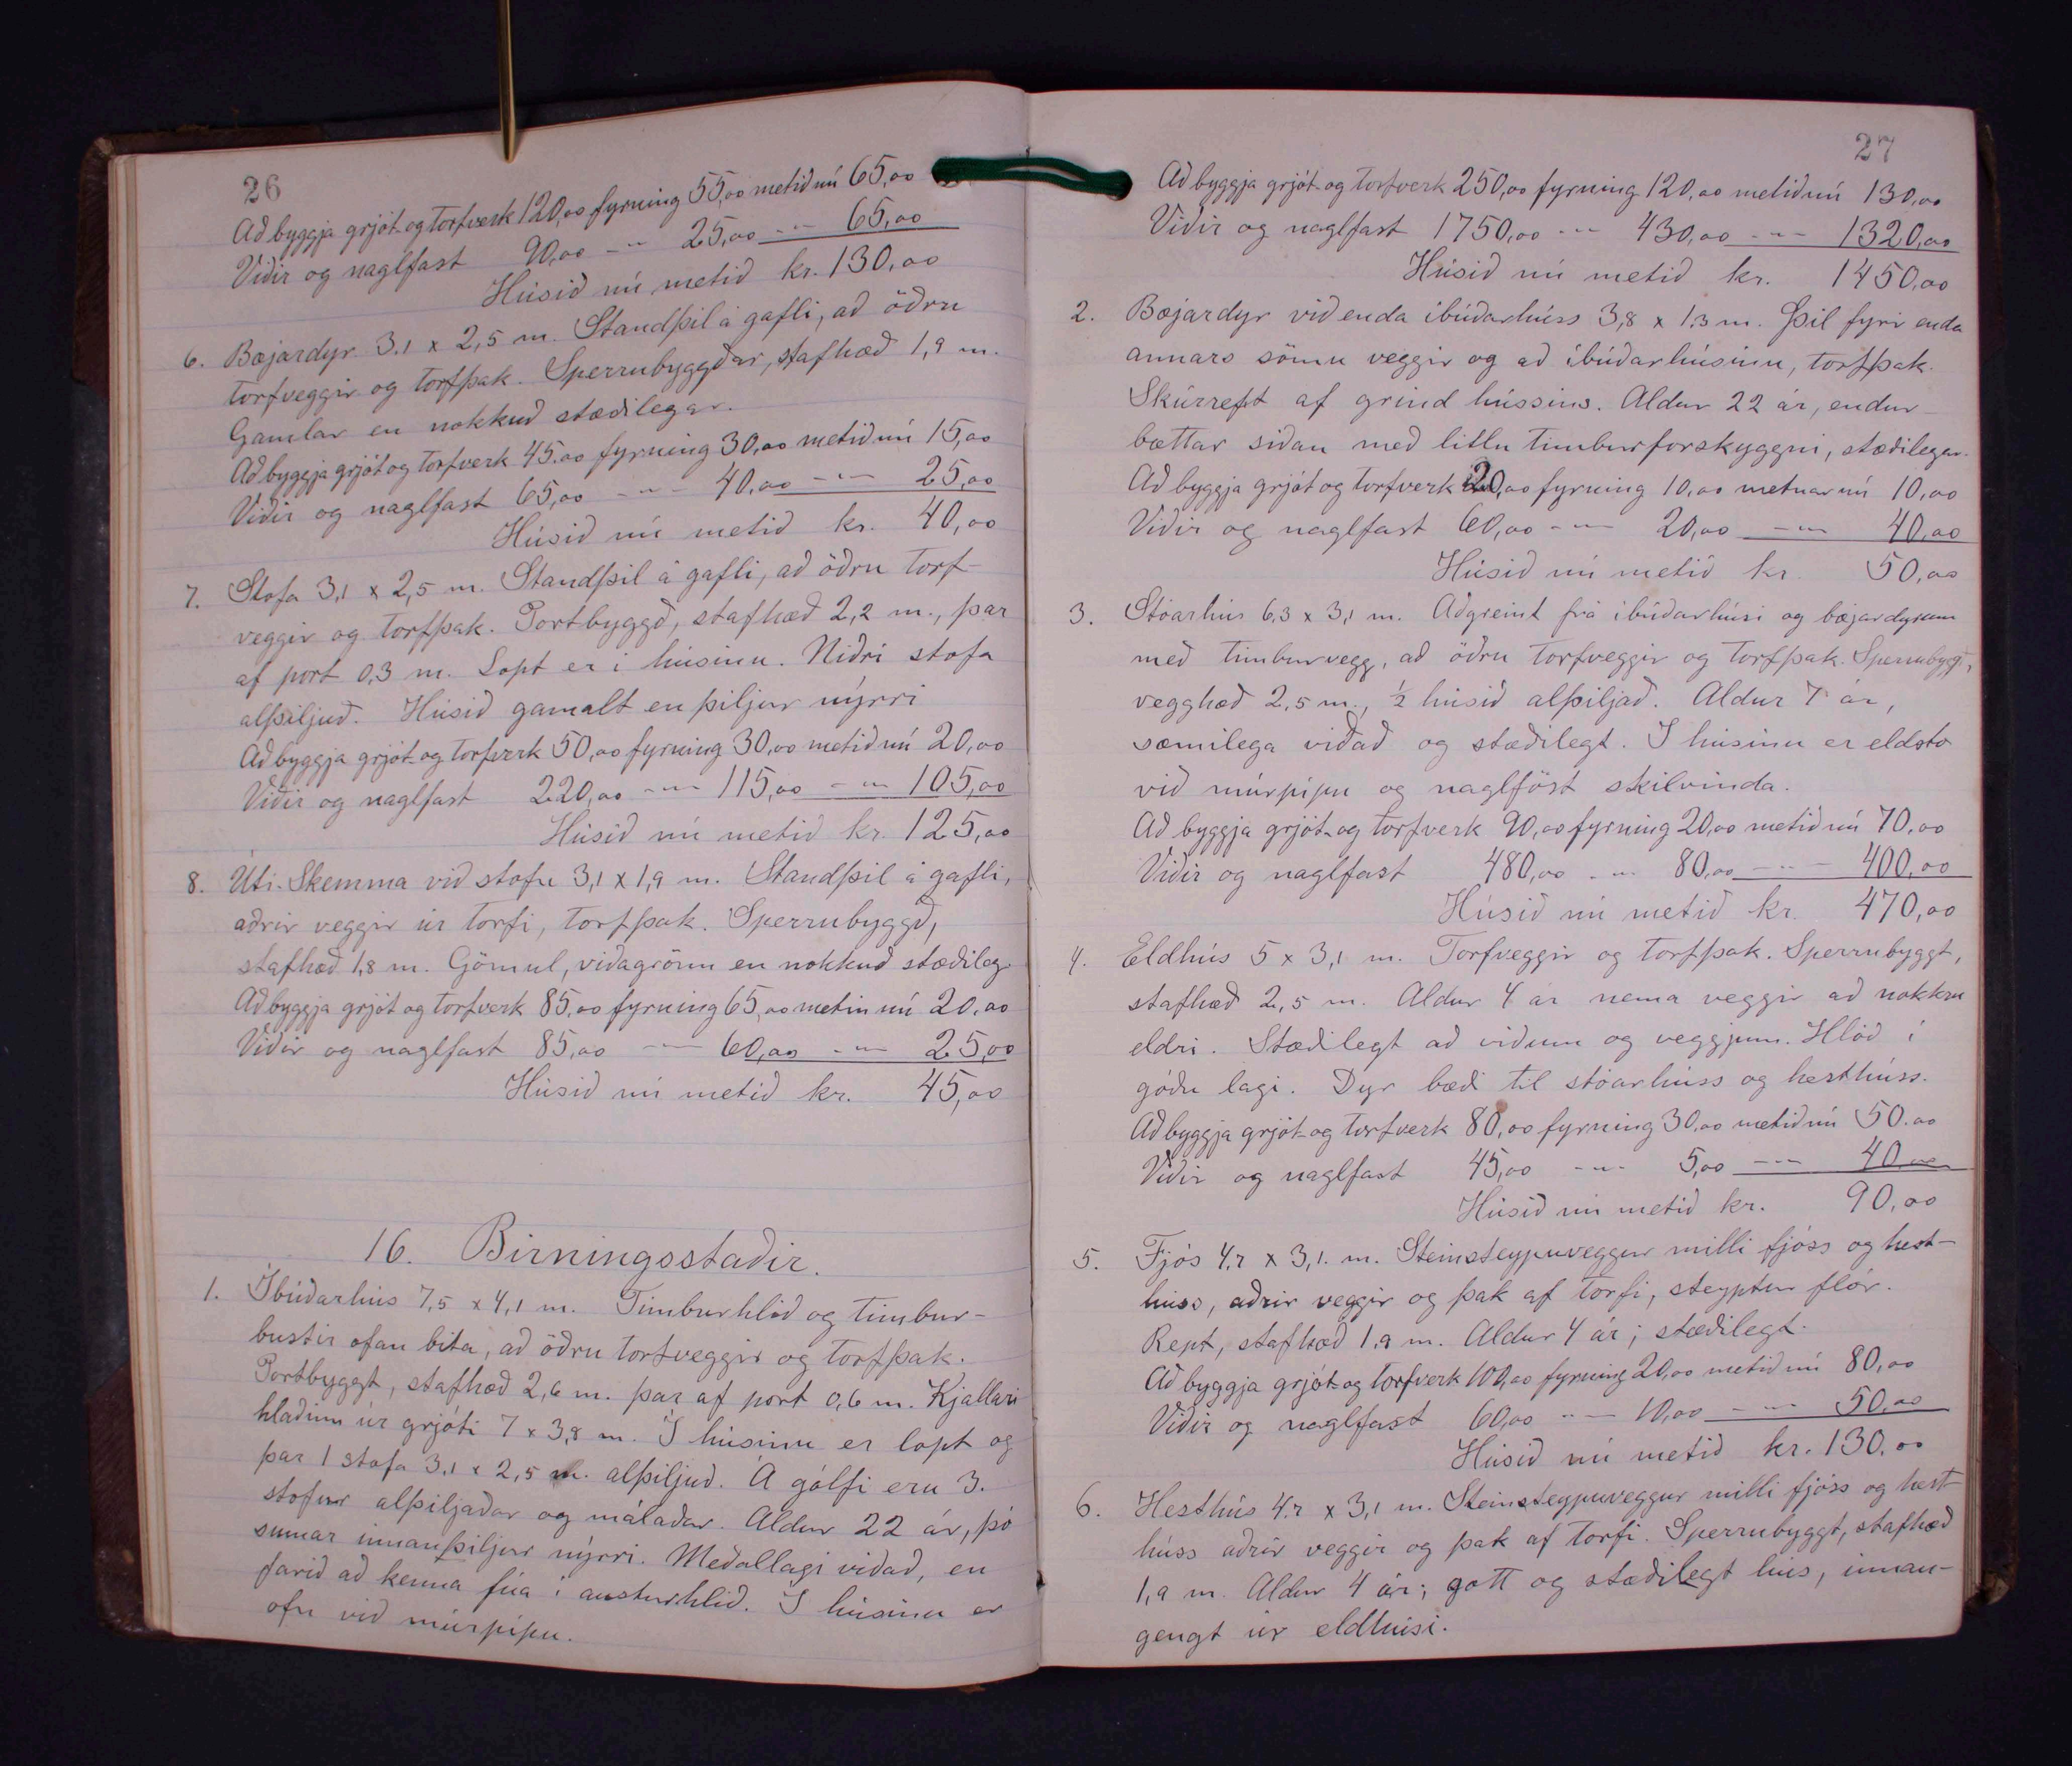 26
Að byggja grjót-og torfverk 120,00 fyrning 55,00 metið nú 65,00
Viðir og naglfast 90,00 -"- 25,00 -"- 65,00
Húsið nú metið kr. 130,00
6. Bæjardyr 3.1 x 2,5 m. Standþil á gafli, að öðru
torfveggir og torfþak. Sperrubyggðar, stafhæð 1,9 m.
Gamlar en nokkuð stæðilegar.
Að byggja grjót og torfverk 45.00 fyrning 30,00 metið nú 15,00
Viðir og naglfast 65,00 -"- 40,00 -"- 25,00
Húsið nú metið kr. 40,00
7. Stofa 3,1 x 2,5 m. Standþil á gafli, að öðru torf-
veggir og torfþak. Portbyggð, stafhæð 2,2 m., þar
af port 0,3 m. Lopt er í húsinu. Niðri stofa
alþiljuð. Húsið gamalt en þiljur nýrri
Að byggja grjót-og torfverk 50,00 fyrning 30,00 metið nú 20,00
Viðir og naglfast 220,00 -"- 115,00 -"- 105,00
Húsið nú metið kr. 125,00
8. Úti-Skemma við stofu 3,1 x 1,9 m. Standþil á gafli,
aðrir veggir úr torfi, torfþak. Sperrubyggð,
stafhæð 1,8 m. Gömul, viðagrönn en nokkuð stæðileg
Að byggja grjót og torfverk 85,00 fyrning 65,00 metin nú 20,00
Viðir og naglfast 85,00 -"- 60,00 -"- 25,00
Húsið nú metið kr. 45,00
16. Birningsstaðir.
1. Íbúðarhús 7,5 x 4,1 m. Timburhlið og timbur-
bustir ofan bita, að öðru torfveggir og torfþak.
Portbyggt, stafhæð 2,6 m. þar af port 0,6 m. Kjallari
hlaðinn úr grjóti 7 x 3,8 m. Í húsinu er lopt og
þar 1 stofa 3,1 x 2,5 m. alþiljuð. Á gólfi eru 3.
stofur alþiljaðar og málaðar. Aldur 22 ár, þó
sumar innanþiljur nýrri. Meðallagi viðað, en
farið að kenna fúa í austurhlið. Í húsinu er
ofn við múrpípu.
27
Að byggja grjót-og torfverk 250,00 fyrning 120,00 metið nú 130,00
Viðir og naglfast 1750,00 -"- 430,00 -"- 1320,00
Húsið nú metið kr. 1450,00
2. Bæjardyr við enda íbúðarhúss 3,8 x 1.3 m. Þil fyri enda
annars sömu veggir og að íbúðarhúsinu, torfþak.
Skúrreft af grind hússins. Aldur 22 ár, endur-
bættar síðan með litlu timburforskyggni, stæðilegar.
Að byggja grjót og torfverk 20,00 fyrning 10,00 metnar nú 10,00
Viðir og naglfast 60,00 -"- 20,00 -"- 40,00
Húsið nú metið kr. 50,00
3. Stóarhús 6,3 x 3,1 m. Aðgreint frá íbúðarhúsi og bæjardyrum
með timburvegg, að öðru torfveggir og torfþak. Sperrubyggt,
vegghæð 2,5 m., ½ húsið alþiljað. Aldur 7 ár,
sæmilega viðað og stæðilegt. Í húsinu er eldstó
við múrpípu og naglföst skilvinda.
Að byggja grjót-og torfverk 90,00 fyrning 20,00 metið nú 70,00
Viðir og naglfast 480,00 -"- 80,00 -"- 400,00
Húsið nú metið kr. 470,00
4. Eldhús 5 x 3,1 m. Torfveggir og torfþak. Sperrubyggt,
stafhæð 2,5 m. Aldur 4 ár nema veggir að nokkru
eldri. Stæðilegt að viðum og veggjum. Hlóð í
góðu lagi. Dyr bæði til stóarhúss og hesthúss.
Að byggja grjót-og torfverk 80,00 fyrning 30,00 metið nú 50.00
Viðir og naglfast 45,00 -"- 5,00 -"- 40,00
Húsið nú metið kr. 90,00
5. Fjós 4,7 x 3,1. m. Steinsteypuveggur milli fjóss og hest-
húss, aðrir veggir og þak af torfi, steyptur flór.
Rept, stafhæð 1.9 m. Aldur 4 ár; stæðilegt.
Að byggja grjót-og torfverk 100,00 fyrning 20,00 metið nú 80,00
Viðir og naglfast 60,00 -"- 10,00 -"- 50,00
Húsið nú metið kr. 130.00
6. Hesthús 4.7 x 3,1 m. Steinsteypuveggur milli fjóss og hest-
húss aðrir veggir og þak af torfi. Sperrubyggt, stafhæð
1,9 m. Aldur 4 ár; gott og stæðilegt hús, innan-
gengt úr eldhúsi.